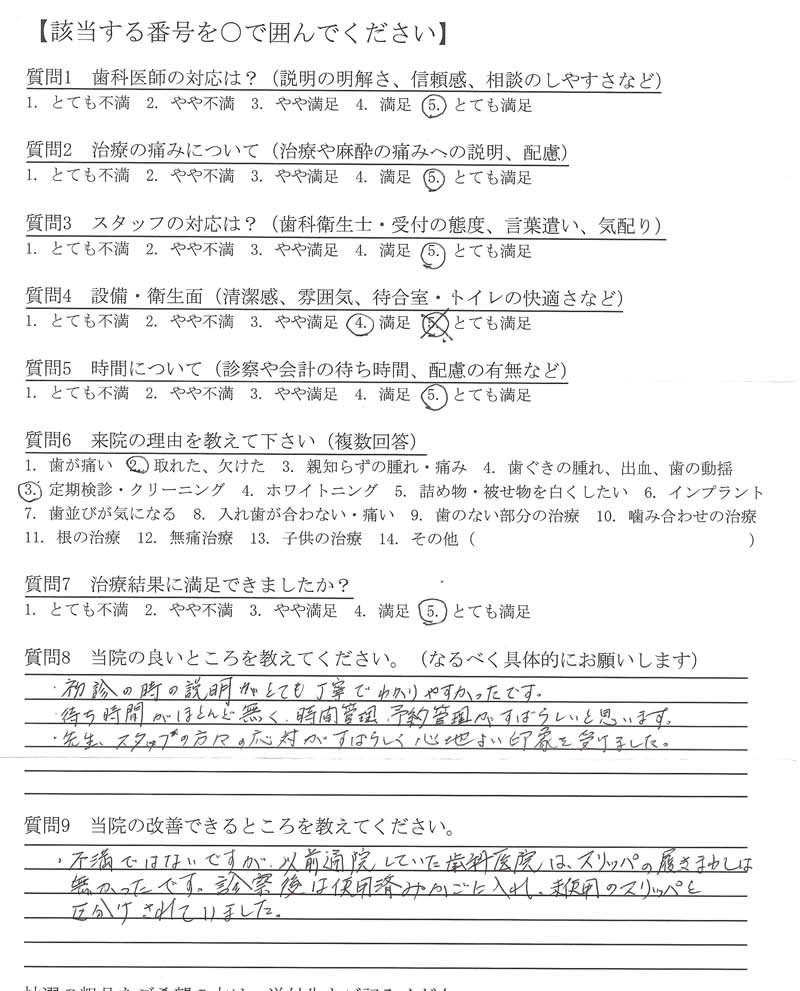 【該当する番号を○で囲んでください】
質問1 歯科医師の対応は？（説明の明解さ、信頼感、相談のしやすさなど）
1. とても不満 2. やや不満 3. やや満足 4. 満足 5. とても満足
質問2 治療の痛みについて（治療や麻酔の痛みへの説明、配慮）
1. とても不満 2. やや不満 3. やや満足 4. 満足 5. とても満足
質問3 スタッフの対応は？（歯科衛生士・受付の態度、言葉遣い、気配り）
1. とても不満 2. やや不満 3. やや満足 4. 満足 5. とても満足
質問4 設備・衛生面（清潔感、雰囲気、待合室・トイレの快適さなど）
1. とても不満 2. やや不満 3. やや満足 4. 満足 5. とても満足
質問5 時間について（診察や会計の待ち時間、配慮の有無など）
1. とても不満 2. やや不満 3. やや満足 4. 満足 5. とても満足
質問6 来院の理由を教えて下さい（複数回答）
1. 歯が痛い 2. 取れた、欠けた 3. 親知らずの腫れ・痛み 4. 歯ぐきの腫れ、出血、歯の動揺
3. 定期検診・クリーニング 4. ホワイトニング 5. 詰め物・被せ物を白くしたい 6. インプラント
7. 歯並びが気になる 8. 入れ歯が合わない・痛い 9. 歯のない部分の治療 10. 噛み合わせの治療
11. 根の治療 12. 無痛治療 13. 子供の治療 14. その他（ ）
質問7 治療結果に満足できましたか？
1. とても不満 2. やや不満 3. やや満足 4. 満足 5. とても満足
質問8 当院の良いところを教えてください。（なるべく具体的にお願いします）
・初診の時の説明がとても丁寧でわかりやすかったです。
・待ち時間がほとんど無く、時間管理、予約管理がすばらしいと思います。
・先生、スタッフの方々の応対がすばらしく心地よい印象を受けました。
質問9 当院の改善できるところを教えてください。
・不満ではないですが、以前通院していた歯科医院は、スリッパの履きまわしは
無かったです。診察後は使用済みかごに入れ、未使用のスリッパと
区分けされていました。